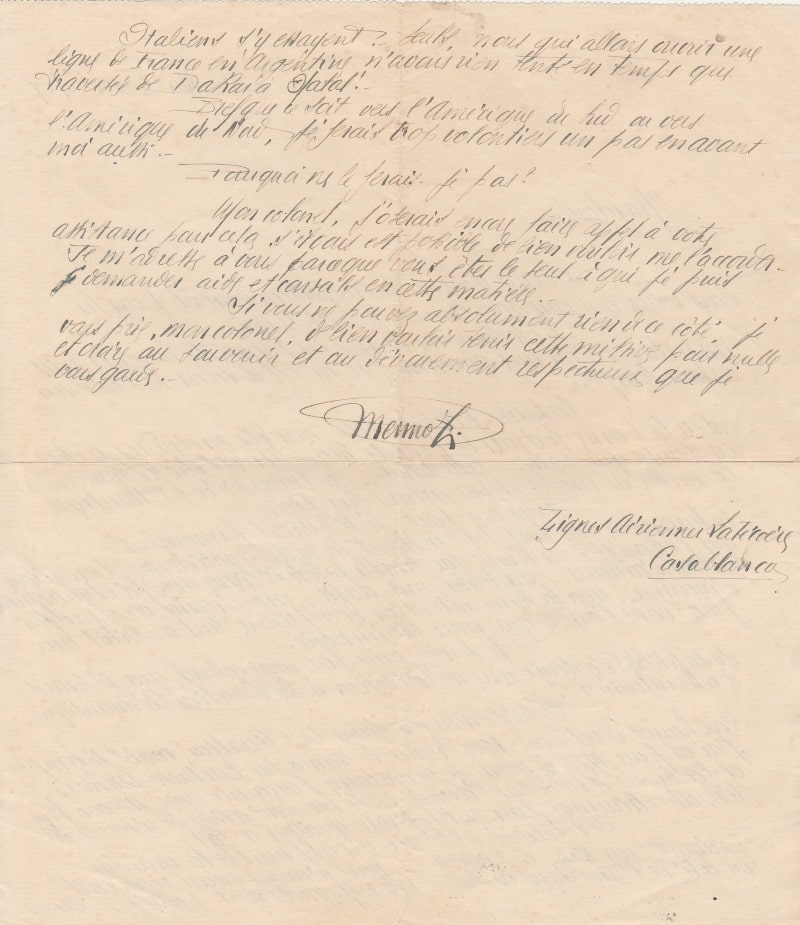 Italiens s'y essayent? Seuls, nous qui allons ouvrir une
ligne de France en Argentine n'avons rien tenté en temps que
traversée de Dakar à Natal!
Que ce soit vers l'Amérique du Sud ou vers
l'Amérique du Nord, je ferais trop volontiers un pas en avant
moi aussi.-
Pourquoi ne le ferais-je pas?
Mon colonel, j'oserais encore faire appel à votre
assistance pour cela, s'il vous est possible de bien vouloir me l'accorder.
Je m'adresse à vous parce que vous êtes le seul à qui je puis
demander aide et conseils en cette matière.-
Si vous ne pouvez absolument rien de ce côté, je
vous prie, mon colonel, de bien vouloir tenir cette missive pour nulle
et croire au souvenir et au dévouement respectueux que je
vous garde.-
Mermoz
Lignes Aériennes Latécoère
Casablanca